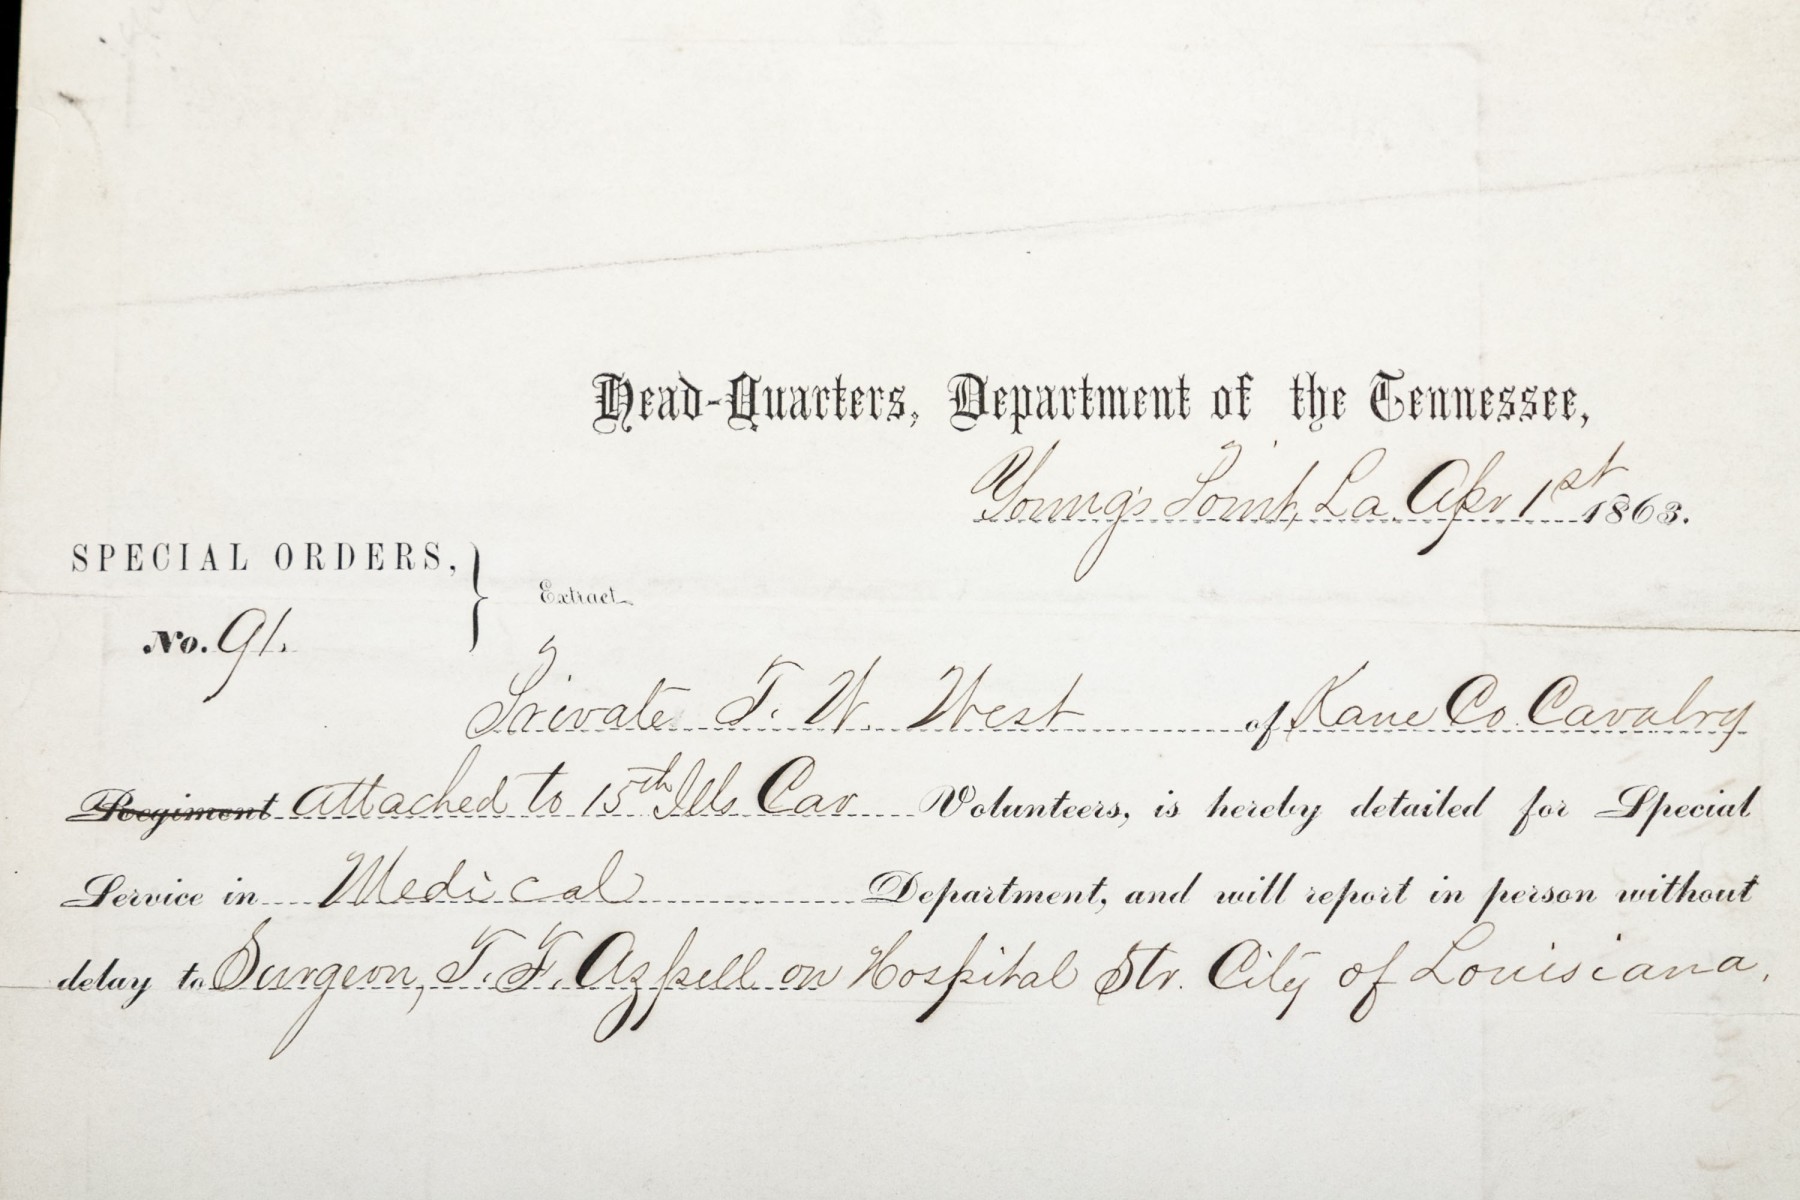 Head-Quarters, Department of the Tennessee,
Young's Point, La. Apr 1st 1863.
SPECIAL ORDERS, } Extract
No. 91.
Private T. W. West of Kane Co. Cavalry
Regiment attached to 15th Ills Cav Volunteers, is hereby detailed for Special
Service in Medical Department, and will report in person without
delay to Surgeon, T. F. Azpell on Hospital Str. City of Louisiana.